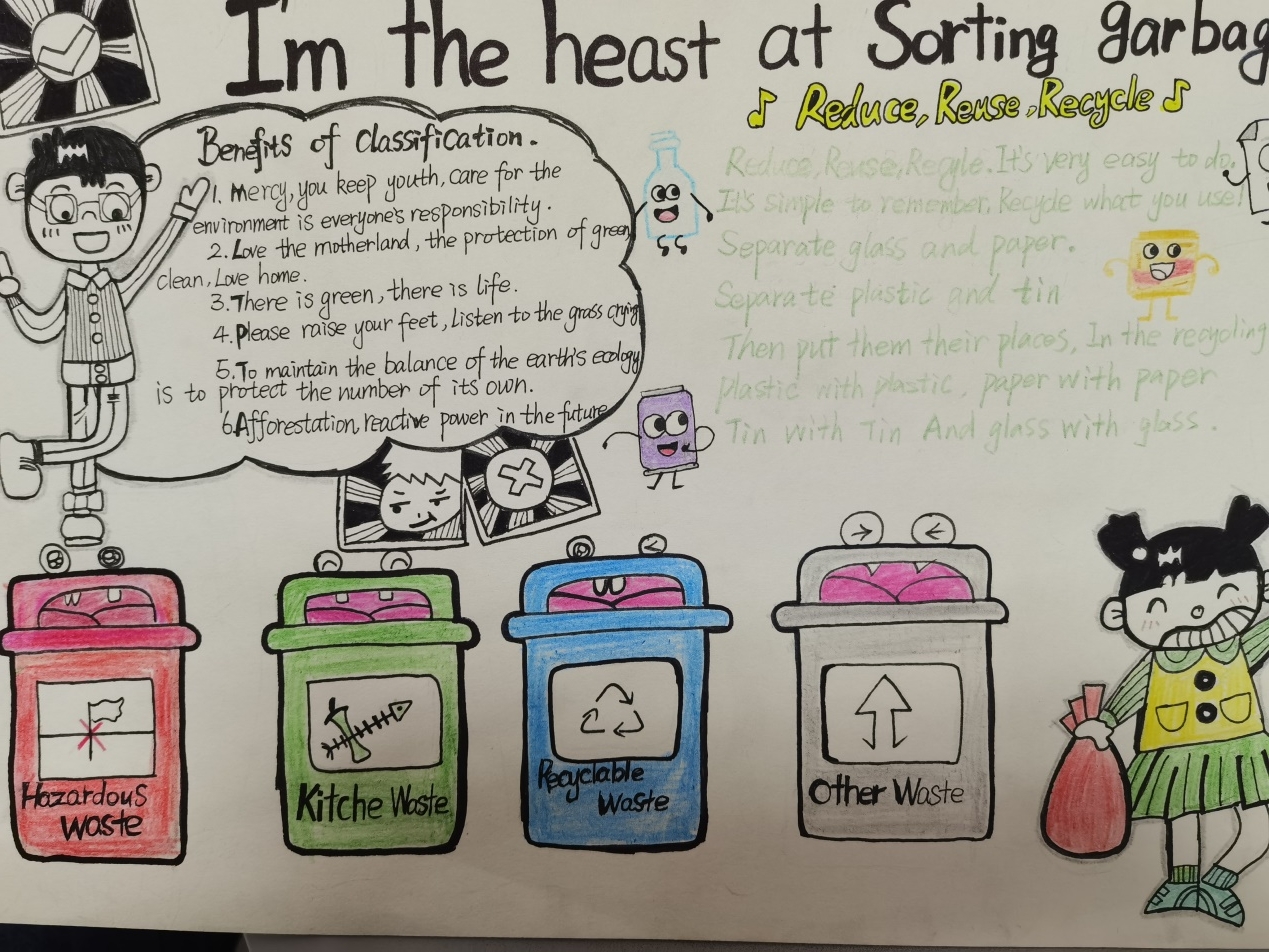 I'm the heast at Sorting garbag
♪ Reduce, Reuse, Recycle ♪
Benefits of classification.
1. Mercy, you keep youth, care for the
environment is everyone's responsibility.
2. Love the motherland, the protection of green,
clean, Love home.
3. There is green, there is life.
4. Please raise your feet, Listen to the grass crying
5. To maintain the balance of the earth's ecology
is to protect the number of its own.
6. Afforestation, reactive power in the future
Reduce, Reuse, Recyle. It's very easy to do.
It's simple to remember, Recycle what you use!
Separate glass and paper.
Separate plastic and tin
Then put them their places, In the recycling
plastic with plastic, paper with paper
Tin with Tin And glass with glass.
Hazardous
waste
Kitche Waste
Recyclable
Waste
Other Waste